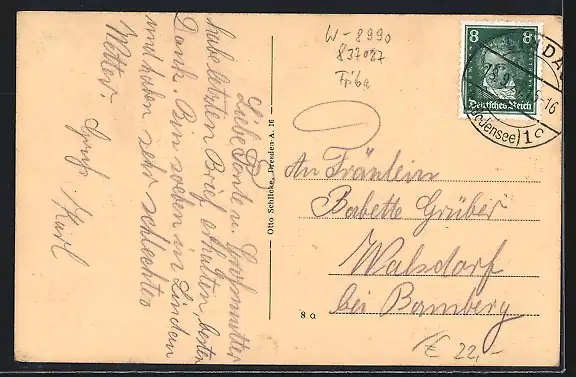 Liebe Tante u. Großmutter
habe letzten Brief erhalten, besten
Dank. Bin soeben in Lindau
und haben sehr schlechtes
Wetter.
Gruß Karl
Otto Schilcke, Dresden-A. 16
8 a
W-8990
837087
Friba
8 8
Deutsches Reich
(Bodensee) 1
An Fräulein
Babette Grüber
Walsdorf
bei Bamberg
€ 22,-